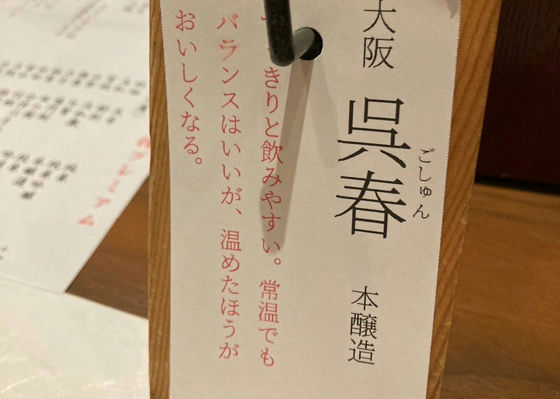 大阪
呉春
ごしゅん
本醸造
きりと飲みやすい。常温でも
バランスはいいが、温めたほうが
おいしくなる。
プレミアム